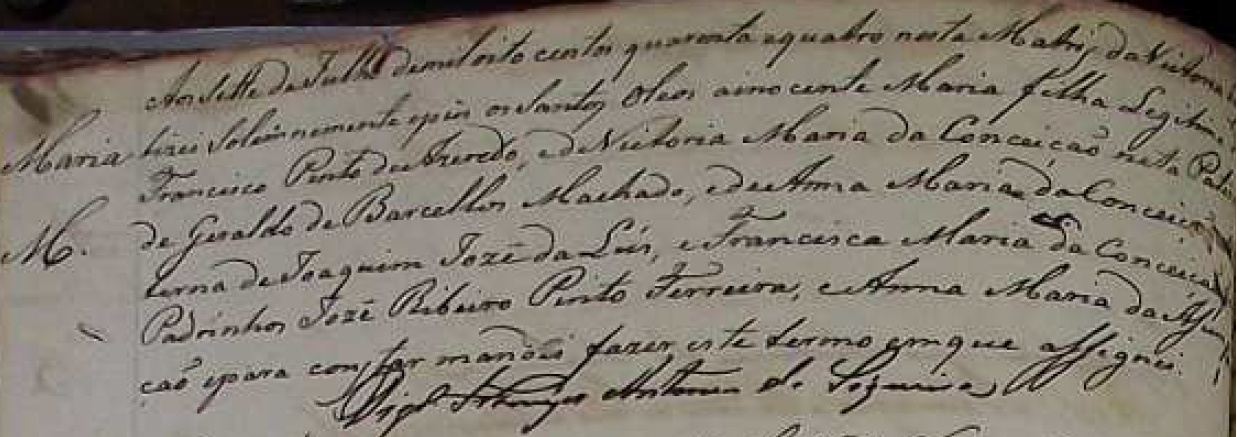 Aos sette de Julho de mil oito centos quarenta e quatro nesta Matriz da Victoria
Maria tizei Solemnemente e puis os Santos Oleos a inocente Maria filha Legitima
Francisco Pinto de Azeredo, e de Victoria Maria da Conceiçaõ neta Pater
M. de Geraldo de Barcellos Machado, e de Anna Maria da Conceiçaõ
terna de Joaquim Jozé da Luis, e Francisca Maria da Conceiçaõ
Padrinhos Jozé Ribeiro Pinto Ferreira, e Anna Maria da Assum
caõ e para constar mandei fazer este termo em que assignei.
Antonio de Siqueira